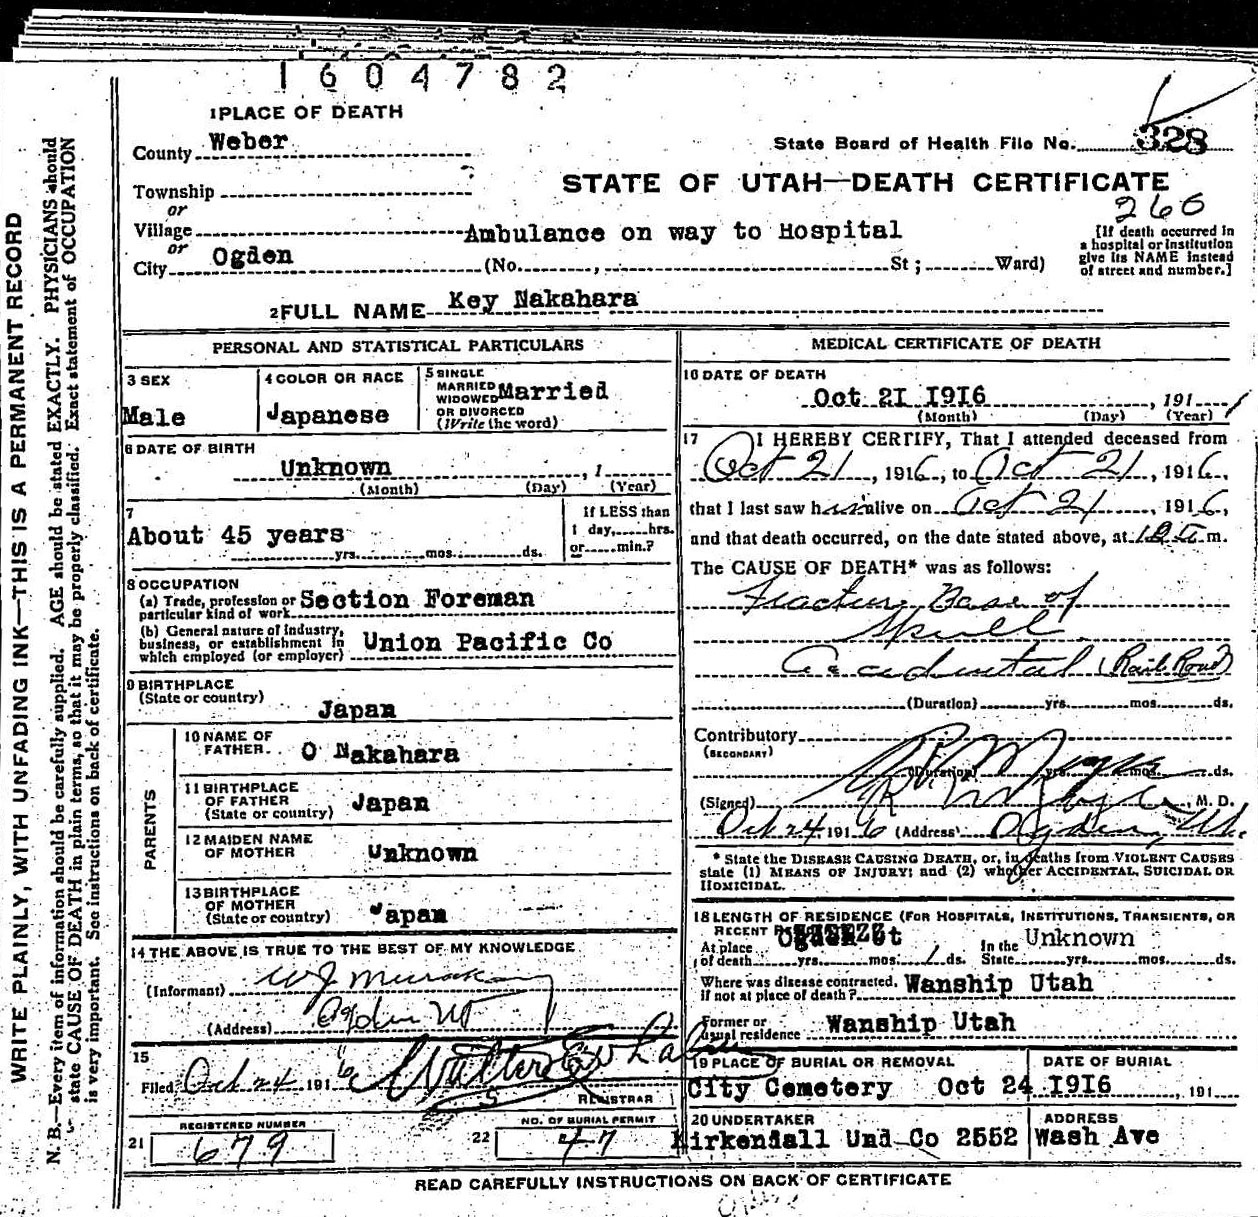 1604782
1 PLACE OF DEATH
County Weber
State Board of Health File No. 328
Township
or
STATE OF UTAH—DEATH CERTIFICATE
260
Village
or
Ambulance on way to Hospital
City Ogden (No. , St ; Ward)
[If death occurred in
a hospital or institution
give its NAME instead
of street and number.]
2 FULL NAME Key Nakahara
PERSONAL AND STATISTICAL PARTICULARS
3 SEX
Male
4 COLOR OR RACE
Japanese
5 SINGLE
MARRIED
WIDOWED
OR DIVORCED
(Write the word)
Married
6 DATE OF BIRTH
Unknown , 1
(Month) (Day) (Year)
7
About 45 years
yrs. mos. ds.
if LESS than
1 day, hrs.
or min.?
8 OCCUPATION
(a) Trade, profession or
particular kind of work Section Foreman
(b) General nature of industry,
business, or establishment in
which employed (or employer) Union Pacific Co
9 BIRTHPLACE
(State or country)
Japan
PARENTS
10 NAME OF
FATHER O Nakahara
11 BIRTHPLACE
OF FATHER
(State or country) Japan
12 MAIDEN NAME
OF MOTHER Unknown
13 BIRTHPLACE
OF MOTHER
(State or country) Japan
14 THE ABOVE IS TRUE TO THE BEST OF MY KNOWLEDGE
(Informant) W J
(Address) Ogden Ut
15
Filed Oct 24 1916
REGISTRAR
REGISTERED NUMBER
21 679
NO. OF BURIAL PERMIT
22 47
MEDICAL CERTIFICATE OF DEATH
16 DATE OF DEATH
Oct 2I I9I6 , 191
(Month) (Day) (Year)
17 I HEREBY CERTIFY, That I attended deceased from
Oct 21, 1916, to Oct 21, 1916,
that I last saw him alive on Oct 21, 1916,
and that death occurred, on the date stated above, at m.
The CAUSE OF DEATH* was as follows:
Fracture Base of
Skull
Accidental (Rail Road)
(Duration) yrs. mos. ds.
Contributory
(SECONDARY)
(Duration) yrs. mos. ds.
(Signed) , M. D.
Oct 24 1916 (Address) Ogden, Ut.
* State the DISEASE CAUSING DEATH, or, in deaths from VIOLENT CAUSES
state (1) MEANS OF INJURY; and (2) whether ACCIDENTAL, SUICIDAL OR
HOMICIDAL.
18 LENGTH OF RESIDENCE (FOR HOSPITALS, INSTITUTIONS, TRANSIENTS, OR
RECENT
At place
of death yrs. mos. 1 ds.
In the
State yrs. mos. ds.
Unknown
Where was disease contracted,
if not at place of death? Wanship Utah
Former or
usual residence Wanship Utah
19 PLACE OF BURIAL OR REMOVAL
City Cemetery
DATE OF BURIAL
Oct 24 I9I6 , 191
20 UNDERTAKER
Kirkendall Und Co 2552
ADDRESS
Wash Ave
READ CAREFULLY INSTRUCTIONS ON BACK OF CERTIFICATE
WRITE PLAINLY, WITH UNFADING INK—THIS IS A PERMANENT RECORD
N. B.—Every item of information should be carefully supplied. AGE should be stated EXACTLY. PHYSICIANS should
state CAUSE OF DEATH in plain terms, so that it may be properly classified. Exact statement of OCCUPATION
is very important. See instructions on back of certificate.